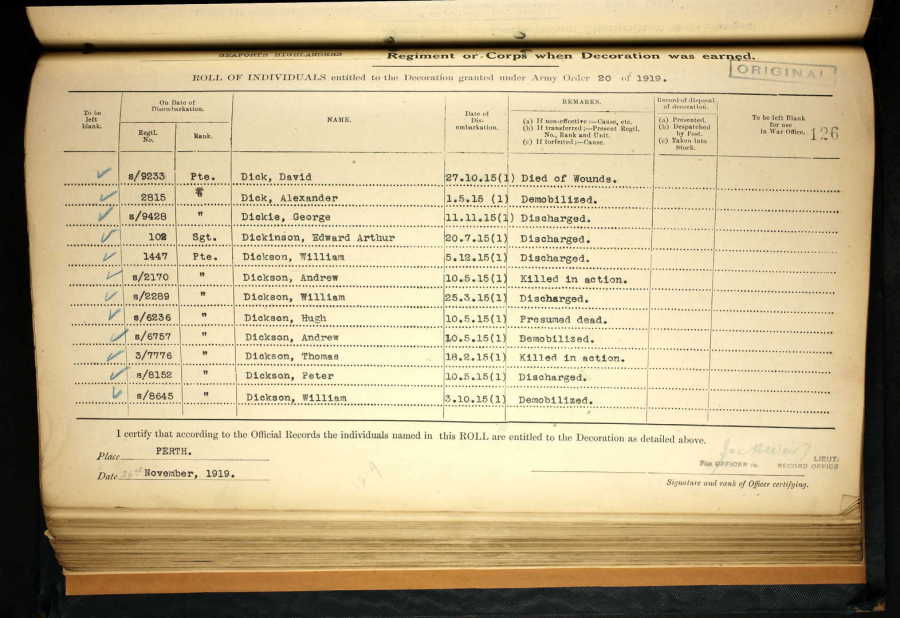 SEAFORTH HIGHLANDERS Regiment or Corps when Decoration was earned.
ROLL OF INDIVIDUALS entitled to the Decoration granted under Army Order 20 of 1919.
ORIGINAL
To be left blank.
On Date of Disembarkation.
Regtl. No.
Rank.
NAME.
Date of Disembarkation.
REMARKS.
(a) If non-effective :—Cause, etc.
(b) If transferred ;—Present Regtl. No., Rank and Unit.
(c) If forfeited ;—Cause.
Record of disposal of decoration.
(a) Presented.
(b) Despatched by Post.
(c) Taken into Stock.
To be left Blank for use in War Office.
126
s/9233 Pte. Dick, David 27.10.15(1) Died of Wounds.
2815 " Dick, Alexander 1.5.15 (1) Demobilized.
s/9428 " Dickie, George 11.11.15(1) Discharged.
102 Sgt. Dickinson, Edward Arthur 20.7.15(1) Discharged.
1447 Pte. Dickson, William 5.12.15(1) Discharged.
s/2170 " Dickson, Andrew 10.5.15(1) Killed in action.
s/2289 " Dickson, William 25.3.15(1) Discharged.
s/6236 " Dickson, Hugh 10.5.15(1) Presumed dead.
s/6757 " Dickson, Andrew 10.5.15(1) Demobilized.
3/7776 " Dickson, Thomas 18.2.15(1) Killed in action.
s/8152 " Dickson, Peter 10.5.15(1) Discharged.
s/8645 " Dickson, William 3.10.15(1) Demobilized.
I certify that according to the Official Records the individuals named in this ROLL are entitled to the Decoration as detailed above.
Place PERTH.
Date November, 1919.
LIEUT.
FOR OFFICER i/c RECORD OFFICE
Signature and rank of Officer certifying.